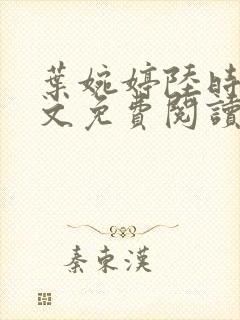 葉婉婷陸時
文免費閱讀
秦東漢